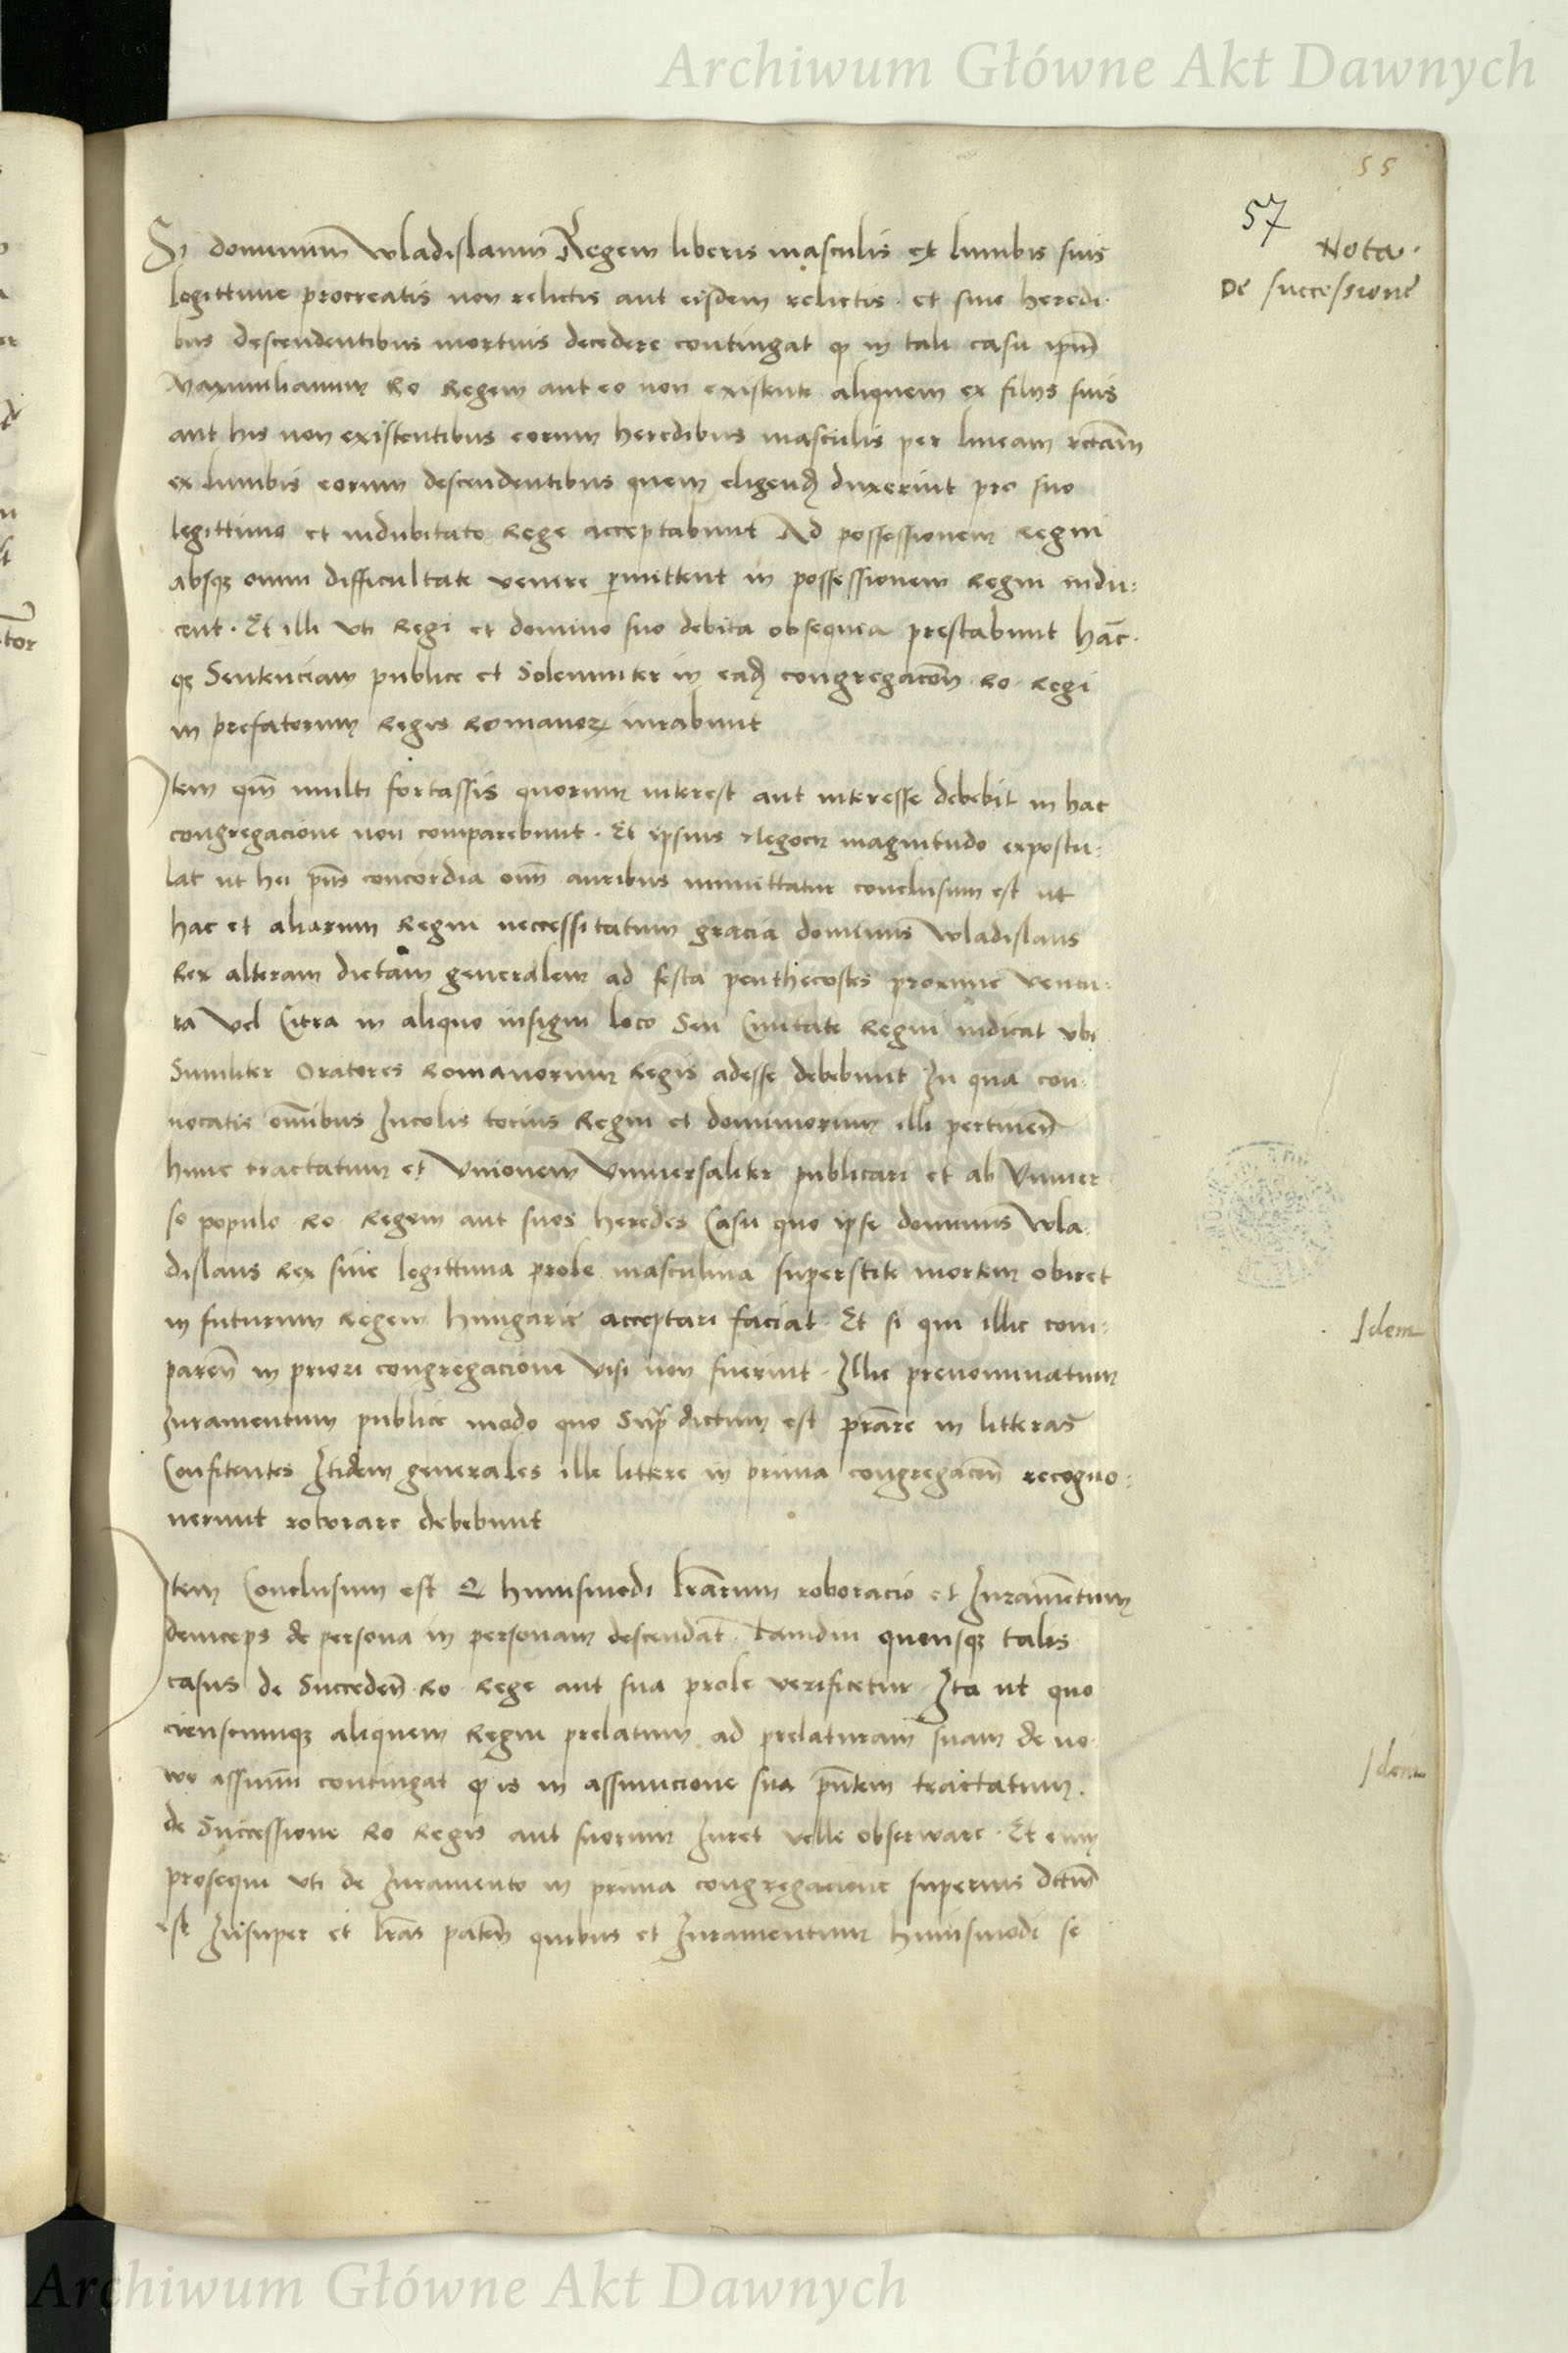 Archiwum Główne Akt Dawnych
55
57
Nota.
De successione
Si dominum Wladislaum Regem liberis masculis ex lumbis suis
legittime procreatis non relictis aut eisdem relictis. et sine heredi.
bus descendentibus mortuis decedere contingat q in tali casu ipm̄
Maximilianum Ro Regem aut eo non existente aliquem ex filijs suis
aut his non existentibus eorum heredibus masculis per lineam rectam
ex lumbis eorum descendentibus quem eligend duxerint pro suo
legittimo et indubitato Rege acceptabunt Ad possessionem Regni
absq omni difficultate venire permittent in possessionem Regni indu:
cent. Et illi uti Regi et domino suo debita obsequia prestabunt hāc.
q Sentenciam publice et Solemniter in ead congregacōn Ro. Regi
in prefatorum Regis Romanor iurabunt
Item qm̄ multi fortassis quorum interest aut interesse debebit in hac
congregacione non comparebunt. Et ipsius Negocij magnitudo expostu:
lat ut hei pn̄s concordia om̄ auribus inmittatur conclusum est ut
hac et aliarum Regni neccessitatum gracia dominus Wladislaus
Rex alteram dietam generalem ad festa penthecostes proxime ventu:
ra vel Citra in aliquo insigni loco Seu Civitate Regni indicat ubi
Similiter Oratores Romanorum Regis adesse debebunt In qua con.
vocatis om̄ibus Incolis tocius Regni et dominiorum illi pertinen̄
hunc tractatum et Unionem Universaliter publicari et ab Univer
so populo Ro. Regem aut suos heredes Casu quo ipse dominus Wla.
dislaus Rex sine legittima prole masculina superstite mortem obiret
in futurum Regem hungarie acceptari faciat. Et si qui illic com:
paren̄ in priori congregacione visi non fuerint. Illic prenominatum
Iuramentum publice modo quo Supr dictum est prāre in litteras
Confitentes Itidem generales ille littere in prima congregacōn recogno:
verunt roborare debebunt
Idem
Item Conclusum est Q huiusmodi lrārum roboracio et Iuramētum
deinceps de persona in personam descendāt. Tamdiu quousq talis
casus de Succeden̄ Ro. Rege aut sua prole verificetur. Ita ut quo
cienscumq aliquem Regni prelatum ad prelaturam suam de no.
vo assumi contingat q is in assumcione sua pn̄tem tractatum.
de Successione Ro Regis aut suorum Iuret velle observare. Et eum
prosequi uti de Iuramento in prima congregacione superius dictū
est Insuper et lrās paten̄ quibus et Iuramentum huiusmodi se
Idem
Archiwum Główne Akt Dawnych